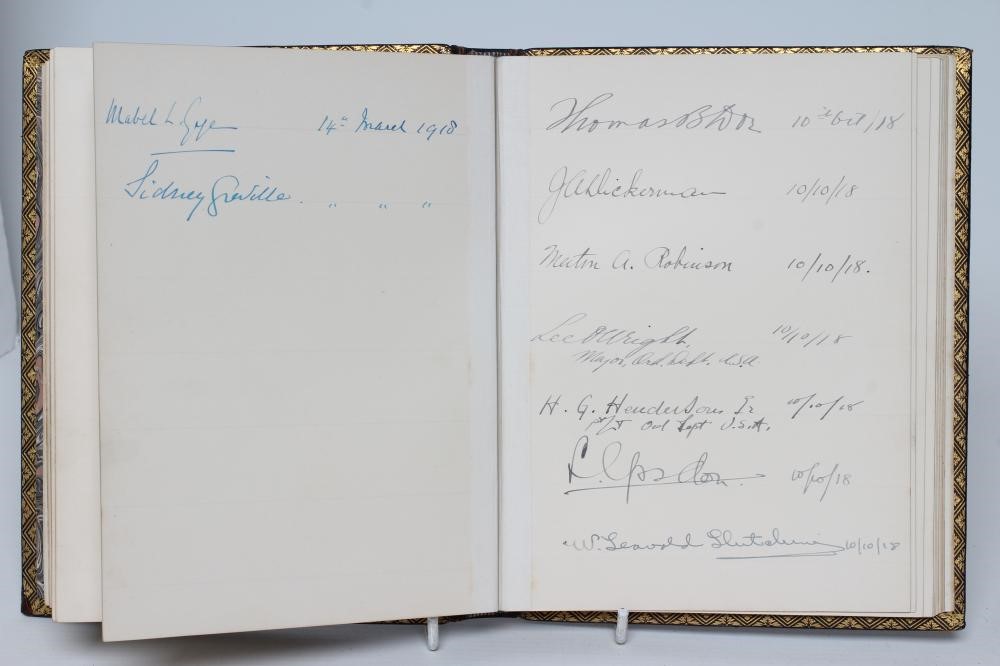 Mabel L Gye 14th March 1918
Sidney Greville. " " "
Thomas B Dor 10th Oct/18
J A Dickerman 10/10/18
Merton A. Robinson 10/10/18.
Lee O Wright. 10/10/18
Major, Ord. Dept. U.S.A
H. G. Henderson Jr 10/10/18
Ord Dept U.S.A.
10/10/18
W. Seavold 10/10/18